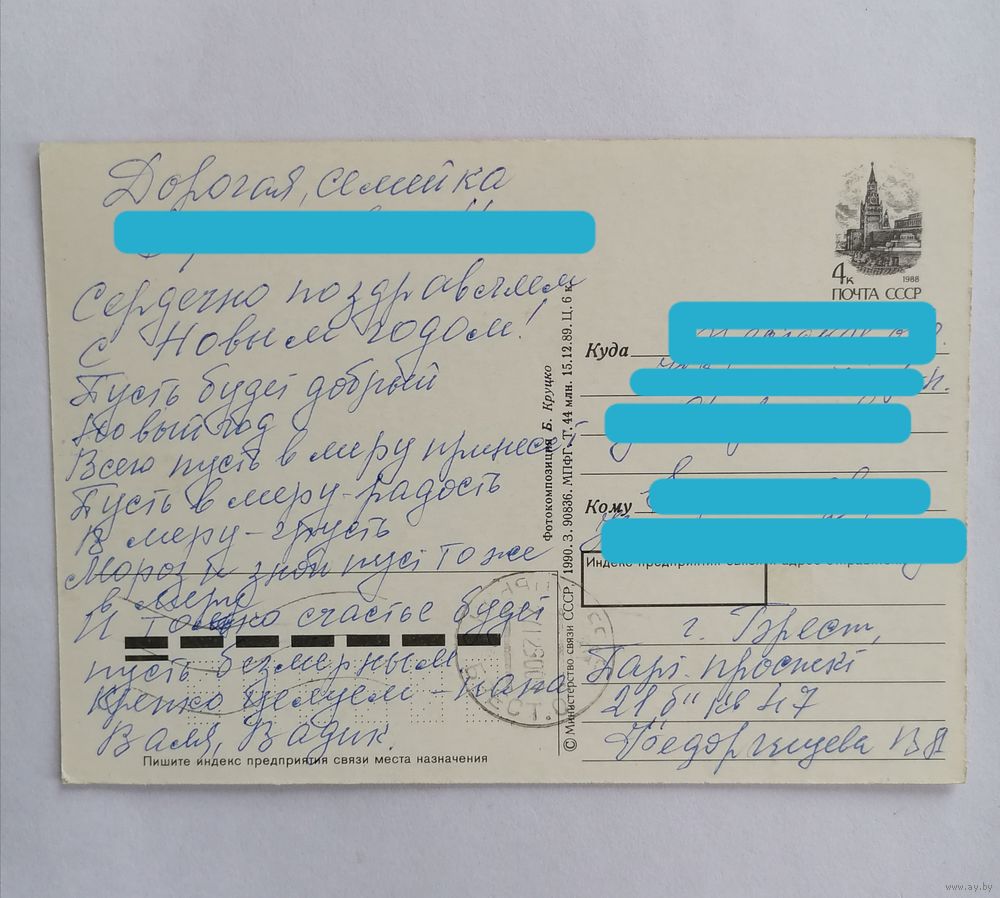 Дорогая, семейка
Сердечно поздравляем
С Новым годом!
Пусть будет добрый
Новый год
Всего пусть в меру принесёт
Пусть в меру - радость
В меру - грусть
Мороз и зной пусть тоже
в меру
И только счастье будет
пусть безмерным
Крепко целуем - папа
Валя, Вадик.
Пишите индекс предприятия связи места назначения
Фотокомпозиция Б. Круцко
© Министерство связи СССР, 1990. З. 90836. МПФГ. Т. 44 млн. 15.12.89. Ц. 6 к.
4к
1988
ПОЧТА СССР
Куда
Кому
Индекс предприятия связи и адрес отправителя
г. Брест,
Парт. проспект
21 б" кв 47
www.ay.by